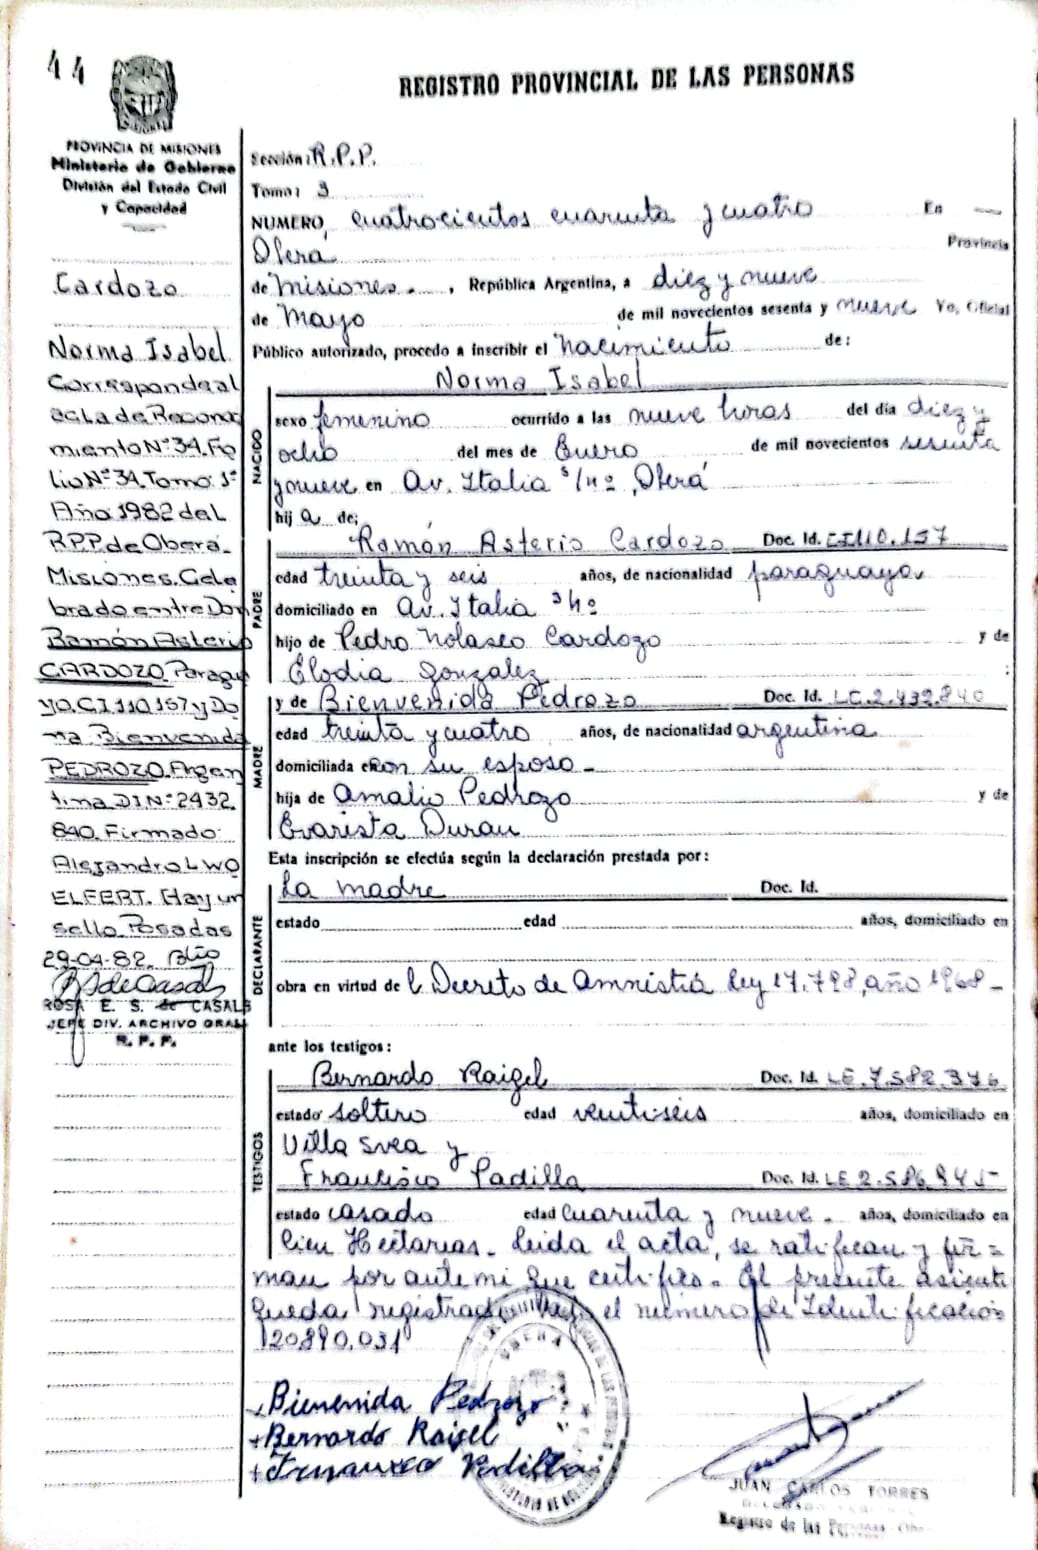 44
REGISTRO PROVINCIAL DE LAS PERSONAS
PROVINCIA DE MISIONES
Ministerio de Gobierno
División del Estado Civil
y Capacidad
Cardozo
Norma Isabel
Corresponde al
acta de Recono
miento Nº 34. Fo
lio Nº 34. Tomo: 1º
Año 1982 del
R.P.P. de Oberá.
Misiones. Cele
brado entre Don
Ramón Asterio
CARDOZO. Paragua
yo. C.I. 110.157 y Do
ña Bienvenida
PEDROZO. Argen
tina DI Nº 2432.
840. Firmado:
Alejandro L WO
ELFERT. Hay un
sello Posadas
29-04-82.
ROSA E. S. de CASALS
JEFE DIV. ARCHIVO GRAL
R. P. P.
Sección: R.P.P.
Tomo: 3
NUMERO, cuatrocientos cuarenta y cuatro En —
Oberá Provincia
de Misiones. , República Argentina, a diez y nueve
de Mayo de mil novecientos sesenta y nueve Yo, Oficial
Público autorizado, procedo a inscribir el nacimiento de:
NACIDO
Norma Isabel
sexo femenino ocurrido a las nueve horas del día diez y
ocho del mes de Enero de mil novecientos sesenta
y nueve en Av. Italia s/nº, Oberá
hij a de;
PADRE
Ramón Asterio Cardozo Doc. Id. CI 110.157
edad treinta y seis años, de nacionalidad paraguaya
domiciliado en Av. Italia s/nº
hijo de Pedro Nolasco Cardozo y de
Elodia Gonzalez ;
MADRE
y de Bienvenida Pedrozo Doc. Id. LC. 2.432.840
edad treinta y cuatro años, de nacionalidad argentina
domiciliada con su esposo -
hija de Amalio Pedrozo y de
Evarista Duran
Esta inscripción se efectúa según la declaración prestada por:
DECLARANTE
La madre Doc. Id.
estado edad años, domiciliado en
obra en virtud de l Decreto de Amnistía Ley 17.798, año 1968 -
ante los testigos:
TESTIGOS
Bernardo Raigel Doc. Id. LE. 7.582.376
estado soltero edad veintiseis años, domiciliado en
Villa Svea y
Francisco Padilla Doc. Id. LE 2.586.845
estado casado edad cuarenta y nueve. años, domiciliado en
Cien Hectareas. Leida el acta, se ratifican y fir=
man por ante mi que certifico. El presente asiento
queda registrado bajo el número de Identificación
20890.031
Bienvenida Pedrozo
+Bernardo Raigel
+Francisco Padilla
OBERA
JUAN CARLOS TORRES
Registro de las Personas